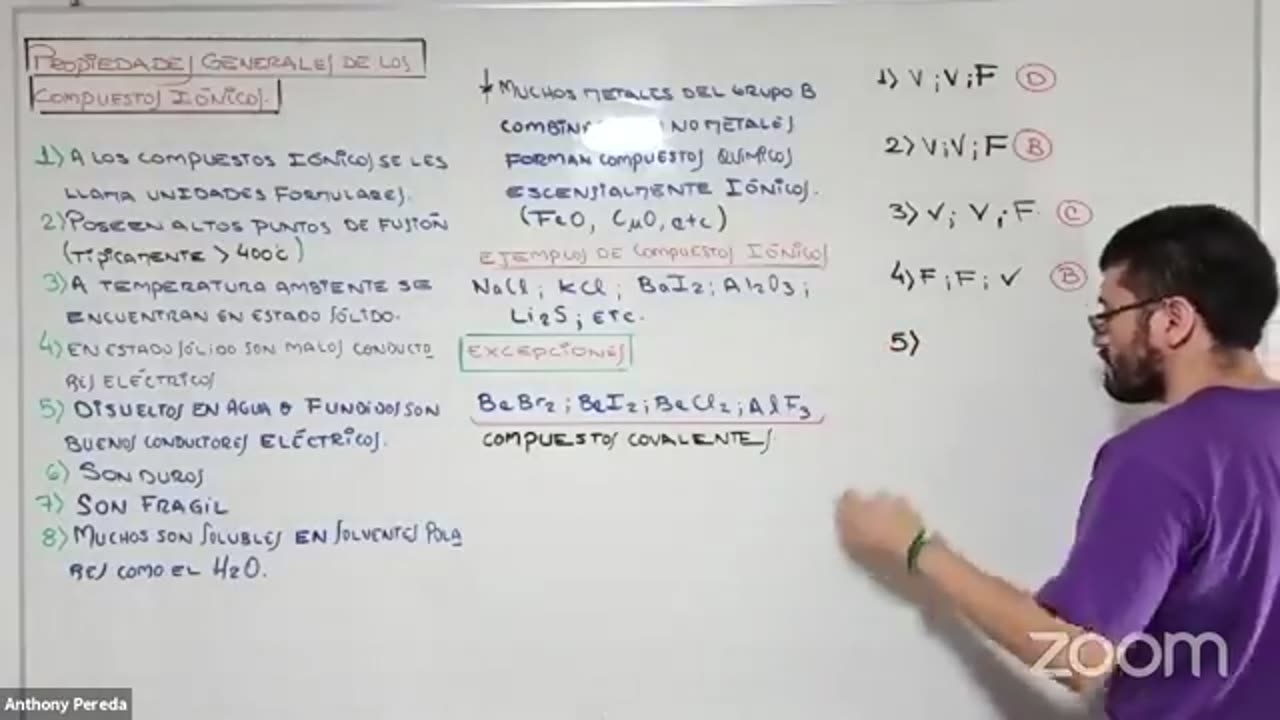 PROPIEDADES GENERALES DE LOS
COMPUESTOS IÓNICOS.
1) A LOS COMPUESTOS IÓNICOS SE LES
LLAMA UNIDADES FORMULARES.
2) POSEEN ALTOS PUNTOS DE FUSIÓN
(TÍPICAMENTE > 400°C)
3) A TEMPERATURA AMBIENTE SE
ENCUENTRAN EN ESTADO SÓLIDO.
4) EN ESTADO SÓLIDO SON MALOS CONDUCTO
RES ELÉCTRICOS
5) DISUELTOS EN AGUA O FUNDIDOS SON
BUENOS CONDUCTORES ELÉCTRICOS.
6) SON DUROS
7) SON FRAGIL
8) MUCHOS SON SOLUBLES EN SOLVENTES POLA
RES COMO EL H2O.
MUCHOS METALES DEL GRUPO B
NO METALES
FORMAN COMPUESTOS QUÍMICOS
ESCENSIALMENTE IÓNICOS.
(FeO, CuO, etc)
EJEMPLOS DE COMPUESTOS IÓNICOS
NaCl; KCl; BaI2; Al2O3;
Li2S; ETC.
EXCEPCIONES
BeBr2; BeI2; BeCl2; AlF3
COMPUESTOS COVALENTES
1) V; V; F D
2) V; V; F B
3) V; V; F. C
4) F; F; V B
5)
zoom
Anthony Pereda